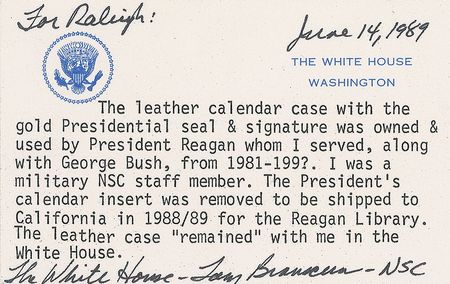 For Raleigh:
June 14, 1989
THE WHITE HOUSE
WASHINGTON
The leather calendar case with the
gold Presidential seal & signature was owned &
used by President Reagan whom I served, along
with George Bush, from 1981-199?. I was a
military NSC staff member. The President's
calendar insert was removed to be shipped to
California in 1988/89 for the Reagan Library.
The leather case "remained" with me in the
White House.
The White House - - NSC